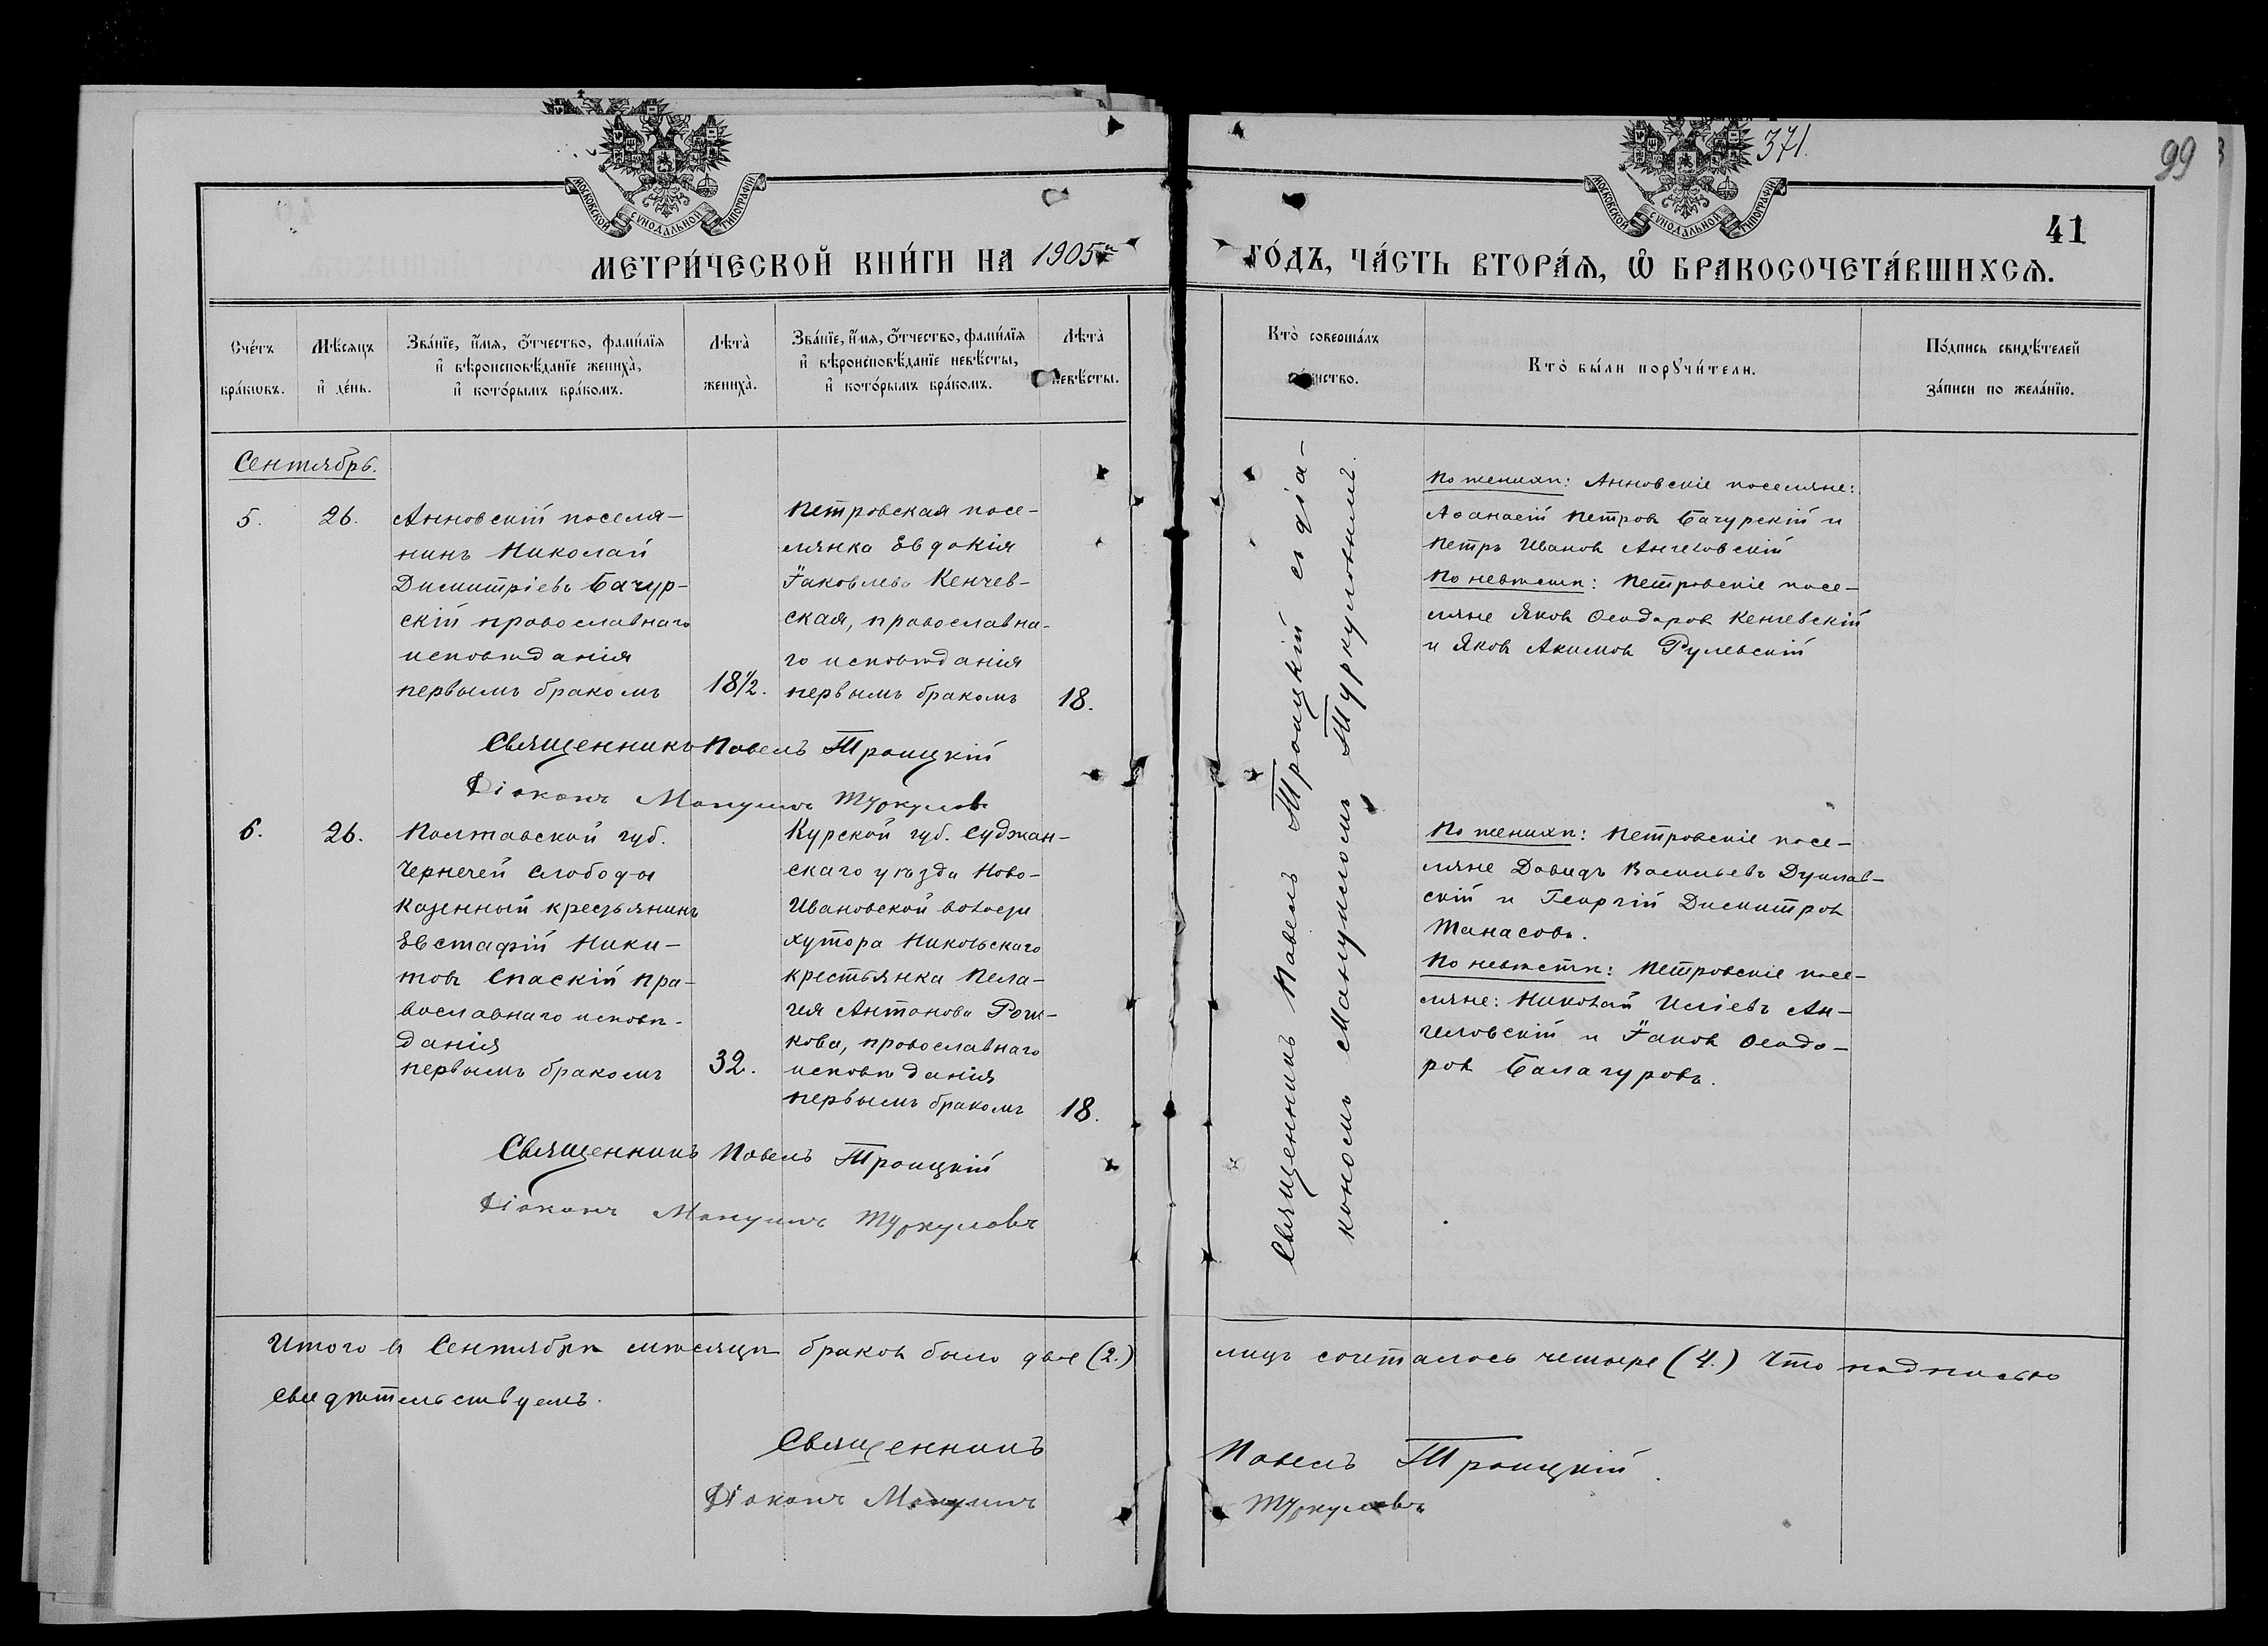 371.
99
41
МОСКОВСКОЙ СѴНОДАЛЬНОЙ ТИПОГРАФІИ
МОСКОВСКОЙ СѴНОДАЛЬНОЙ ТИПОГРАФІИ
МЕТРИ́ЧЕСКОЙ КНИ́ГИ НА 1905й
ГО́ДЪ, ЧА́СТЬ ВТОРА́Ѧ, Ѡ҆ БРАКОСОЧЕТА́ВШИХСѦ.
Сче́тъ
бра́кѡвъ.
Мѣ́сяцъ
и҆ де́нь.
Зва́нїе, и҆́мя, ѻ҆́тчество, фами́лїя
и҆ вѣроисповѣ́данїе жениха̀,
и҆ кото́рымъ бра́комъ.
Лѣта̀
жениха̀.
Зва́нїе, и҆́мя, ѻ҆́тчество, фами́лїя
и҆ вѣроисповѣ́данїе невѣ́сты,
и҆ кото́рымъ бра́комъ.
Лѣта̀
невѣ́сты.
Кто̀ соверша́лъ
та́инство.
Кто̀ бы́ли порꙋчи́тели.
По́дпись свидѣ́телей
за́писи по жела́нїю.
Сентябрь.
5.
26.
Анновскій поселя-
нинъ Николай
Димитріевъ Бачур-
скій православнаго
исповѣданія
первымъ бракомъ
18½.
Петровская посе-
лянка Евдокія
Іаковлева Кенчев-
ская, православна-
го исповѣданія
первымъ бракомъ
18.
Священникъ Павелъ Троицкій съ діа-
кономъ Мануиломъ Туркуловимъ.
По женихѣ: Анновскіе поселяне:
Аѳанасій Петровъ Бачурскій и
Петръ Ивановъ Ангеловскій
По невѣстѣ: Петровскіе посе-
ляне Яковъ Ѳеодоровъ Кенчевскій
и Яковъ Акимовъ Рулевскій
Священникъ Павелъ Троицкій
Діаконъ Мануилъ Туркуловъ
6.
26.
Полтавской губ.
Чернечей Слободы
казенный крестьянинъ
Евстафій Ники-
товъ Спаскій пра-
вославнаго исповѣ-
данія
первымъ бракомъ
32.
Курской губ. Суджан-
скаго уѣзда Ново-
Ивановской волости
хутора Никольскаго
крестьянка Пела-
гія Антонова
православнаго
исповѣданія
первымъ бракомъ
18.
По женихѣ: Петровскіе посе-
ляне Давидъ Васильевъ
и Георгій Димитров
Танасовъ.
По невѣстѣ: Петровскіе посе-
ляне: Николай Иліевъ Ан-
геловскій и Іаковъ Ѳеодо-
ровъ Балагуровъ.
Священникъ Павелъ Троицкій
Діаконъ Мануилъ Туркуловъ
Итого въ Сентябрѣ мѣсяцѣ браковъ было два (2.) лицъ сочеталось четыре (4.) Что подписью
свидѣтельствуемъ.
Священникъ Павелъ Троицкій.
Діаконъ Мануилъ Туркуловъ